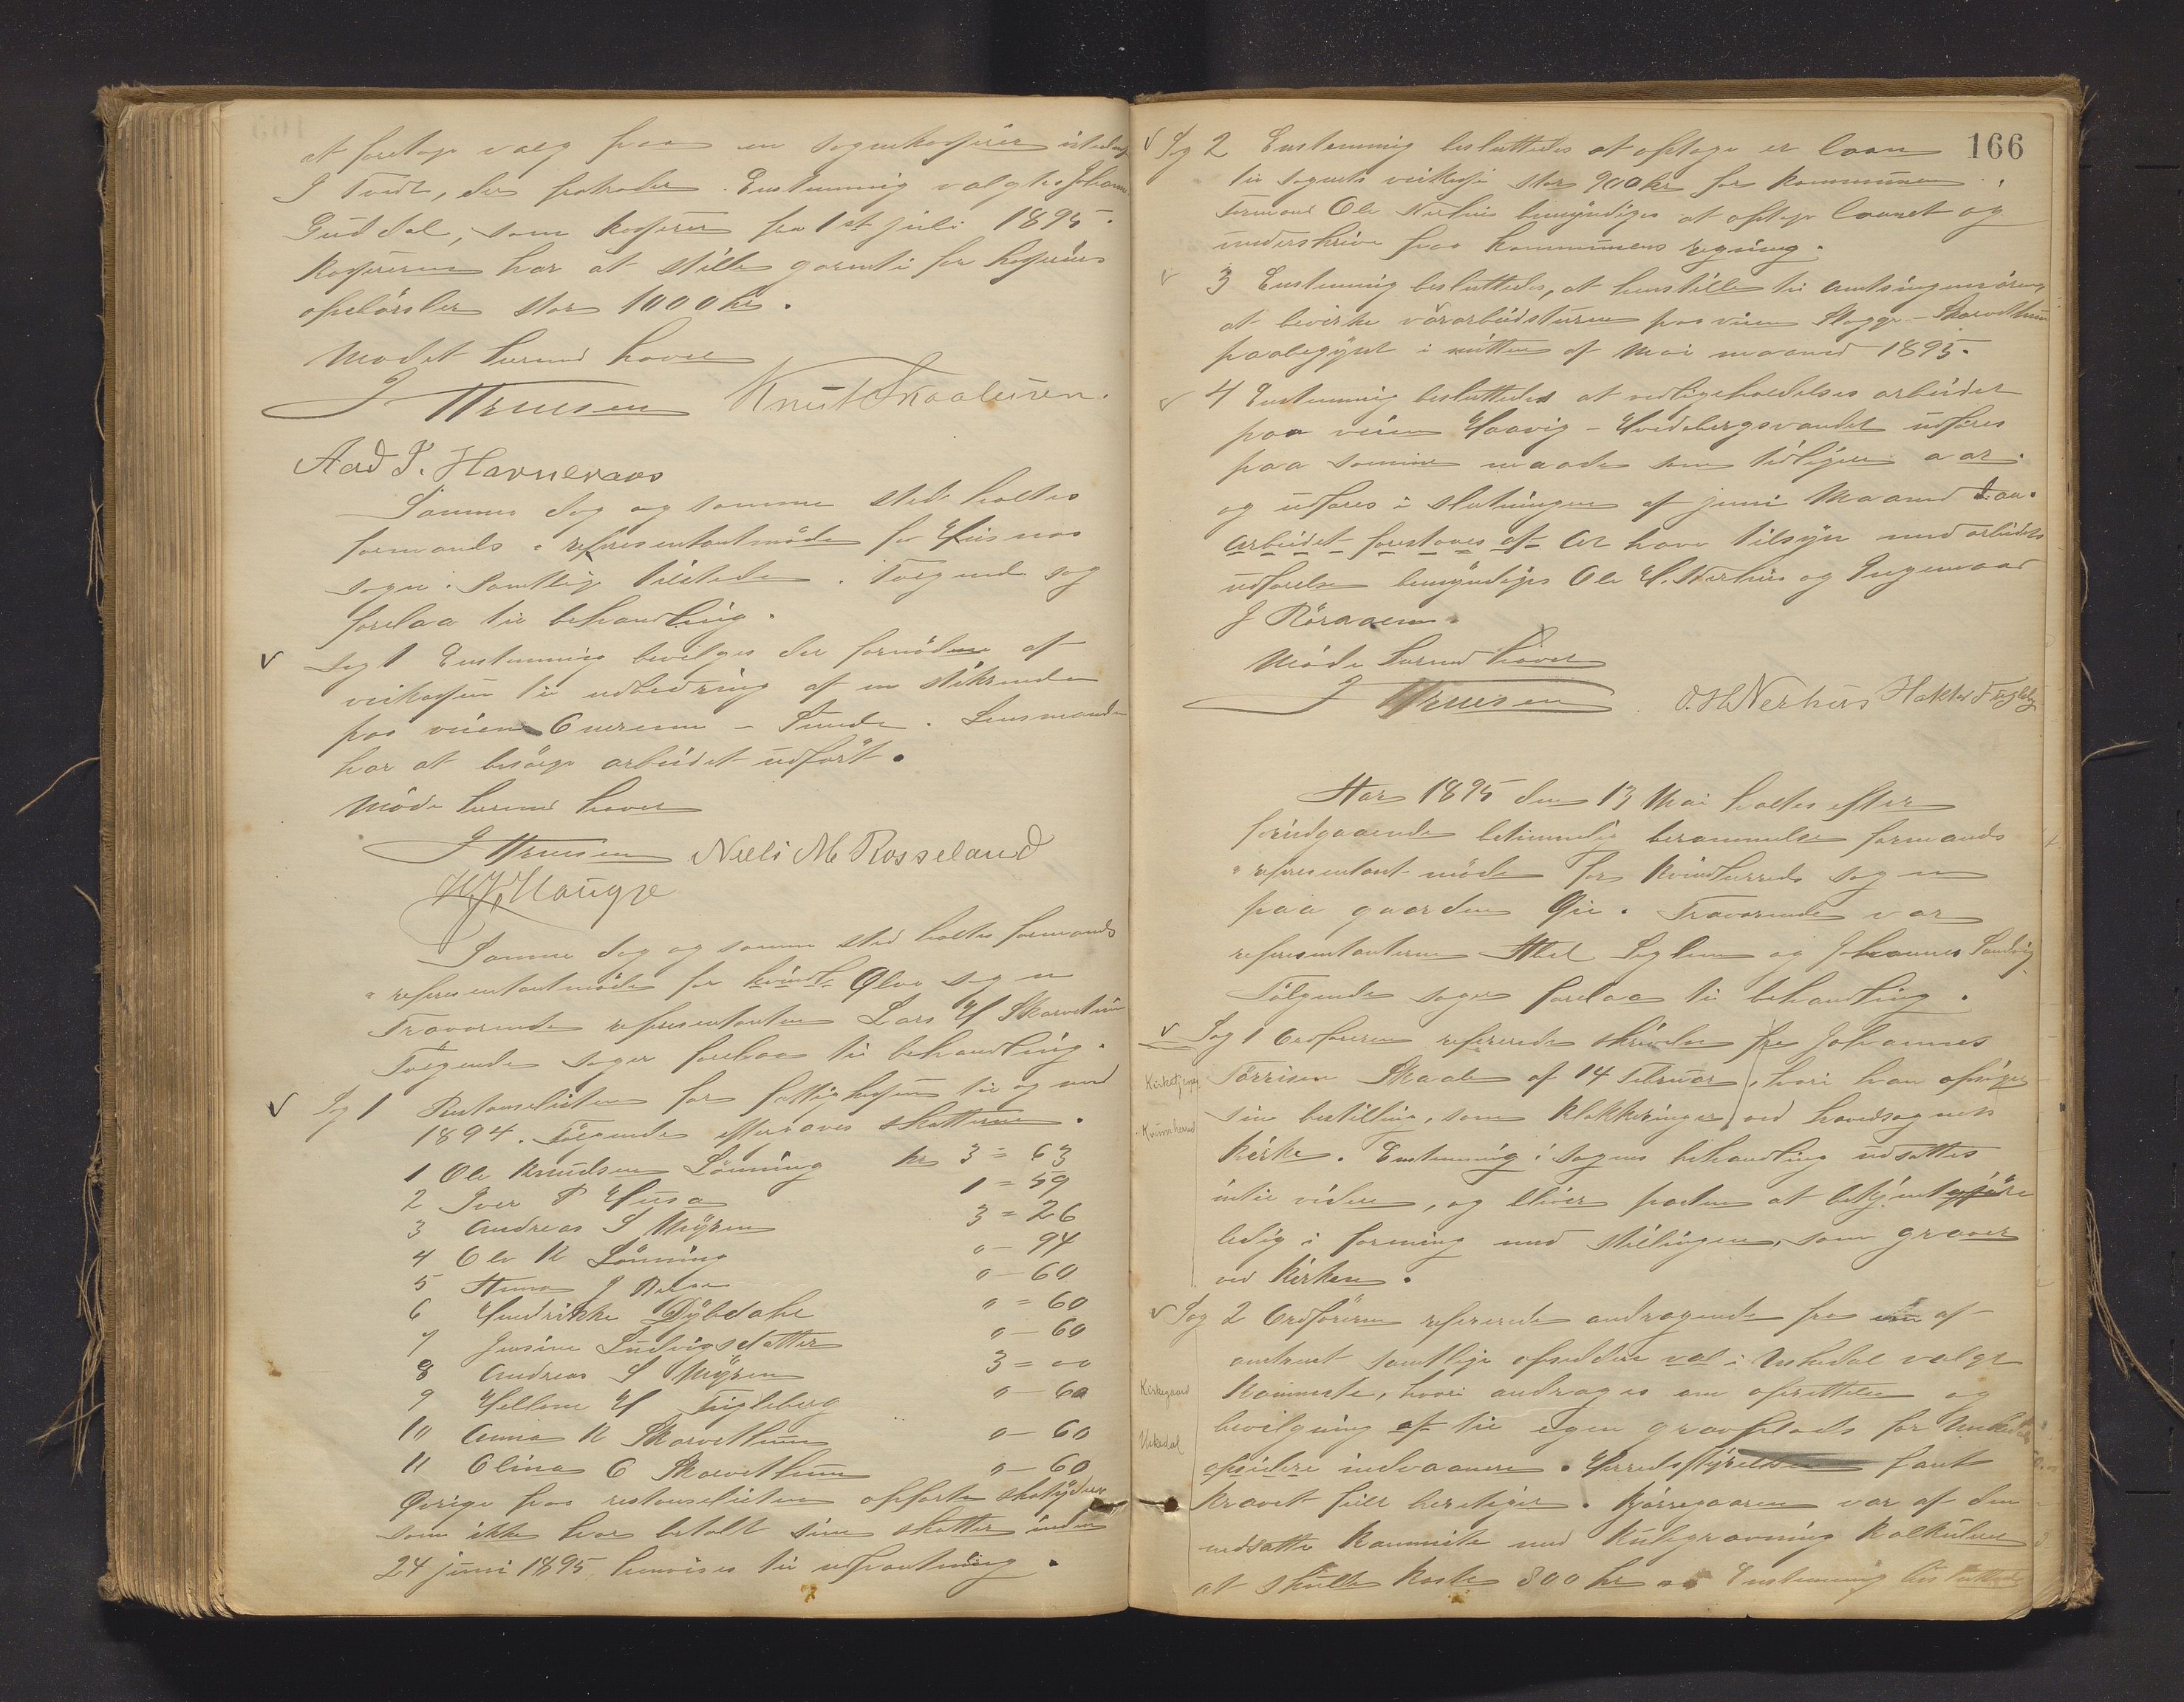 at foretage valg paa en sognekasserer istedenf
J Tvedt, der fratræder. Enstemmig valgtes Johann
Guddal, som kasserer fra 1st juli 1895.
Kassereren har at stille garanti for kassens
opebörsler stor 1000 kr.
Mødet herved hævet
J Truesen Knut Skaaluren.
Aad T. Havneraas
Samme dag og samme sted holtes
formands & representantmöde for Husnæs
sogn. Samtlige tilstede. Følgende sag
forelaa til behandling.
Sag 1 Enstemmig bevilges det fornødne af
veikassen til udbedring af en stikrende
paa veien Guerenn - Sunde. Lensmanden
har at besörge arbeidet udfört.
Möde herved hævet
J Truesen Neels M Rosseland
H J, Hauge
Samme dag og samme sted holtes formands
& representantmöde for kvindh Ølve sogn
Fraværende representanten Lars H Skarvetun
Følgende sager forelaa til behandling.
Sag 1 Restanselisten for fattigkassen til og med
1894. Følgende eftergaves skatterne.
1 Ole Knudsen Lönning kr 3 = 63
2 Iver P Husa 1 = 59
3 Andreas S Myren 3 = 26
4 Ole K Lönning " - 94
5 Anna J " - 60
6 Hendrikke Dybdahl " = 60
7 Jensine Ludvigsdatter " - 60
8 Andreas S Myren 3 = 00
9 Hellene H Fuglebærg " - 60
10 Anna K Skarvethun " - 60
11 Olina O Skarvethun " - 60
Øvrige paa restanselisten opførte skatydere
som ikke har betalt sine skatter inden
24 juni 1895 henvises til udpantning.
166
Sag 2 Enstemmig besluttedes at optage et laan
til sognets veikasse stor 900 kr for kommunen.
Formand Ole Nerhus bemyndiges at optage laanet og
underskrive paa kommunens regning.
3 Enstemmig besluttedes, at henstille til Amtsingeniören
at bevirke vårarbeidsturen paa veien Slagge - Skarvethun
paabegynt i mitten af Mai maaned 1895.
4 Enstemmig besluttedes at vedligeholdelses arbeidet
paa veien Haavig - Hvidebergsvandet udføres
paa samme maade som tidligere aar.
og udføres i slutningen af juni Maaned d. aa.
Arbeidet forestaaes af At have tilsyn med arbeidets
udførelse bemyndiges Ole H. Nerhus og Ingemaar
J Röraaen.
Möde herved hævet
J Truesen O. H Nerhus Haktor Fugleby
Aar 1895 den 13 Mai holtes efter
forudgaaende betimmelig berammelse formands
& representant-möde for Kvindherreds sogn
paa gaarden Øie. Fraværende var
representanterne Abel Seglem og Johannes Sandvig
Følgende sager forelaa til behandling.
Sag 1 Ordføreren refererede skrivelse fra Johannes
Kirketjener
Tørrisen Skaale af 14 Februar, hvori han opsiger
sin bestilling, som klokkeringer ved hovedsognets
Kvinnherad
kirke. Enstemmig: sagens behandling udsættes
intil videre, og bliver posten at bekjentgjöre
ledig i forening med stillingen, som graver
ved kirken.
Sag 2 Ordføreren refererede andragende fra en af
omtrent samtlige opsiddere val i Uskedal valgt
Kirkegaard
kommite, hvori andrages om oprettelse og
bevilgning af til egen gravplads for Uskedals
Uskedal
opsidere indvaanere. Herredstyrelsen fant
kravet fuldt beretiget. Kjørregaaren var af den
nedsatte kommite med kulegravning kalkuleret
at skulle koste 800 kr Enstemmig besluttedes